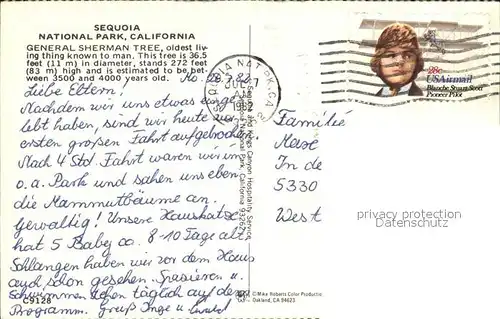 SEQUOIA
NATIONAL PARK, CALIFORNIA
GENERAL SHERMAN TREE, oldest liv-
ing thing known to man. This tree is 36.5
feet (11 m) in diameter, stands 272 feet
(83 m) high and is estimated to be bet-
ween 3500 and 4000 years old.
Liebe Eltern!
Nachdem wir uns etwas
lebt haben, sind wir heute zur
ersten großen Fahrt aufgebrochen.
Nach 4 Std. Fahrt waren wir im
o.a. Park und sahen uns eben
die Mammutbäume an.
Gewaltig! Unsere Hauskatze
hat 5 Baby ca. 8-10 Tage alt
Schlangen haben wir vor dem Haus
auch schon gesehen. Spazieren u.
Schwimmen stehen täglich auf dem
Programm. Gruß Inge u.
C9128
SEQUOIA NAT. PK. CA
JUL
AM
1982
28c
USAirmail
Blanche Stuart Scott
Pioneer Pilot
Familie
In de
5330
West
privacy protection
Datenschutz
©Mike Roberts Color Productions
Oakland, CA 94623